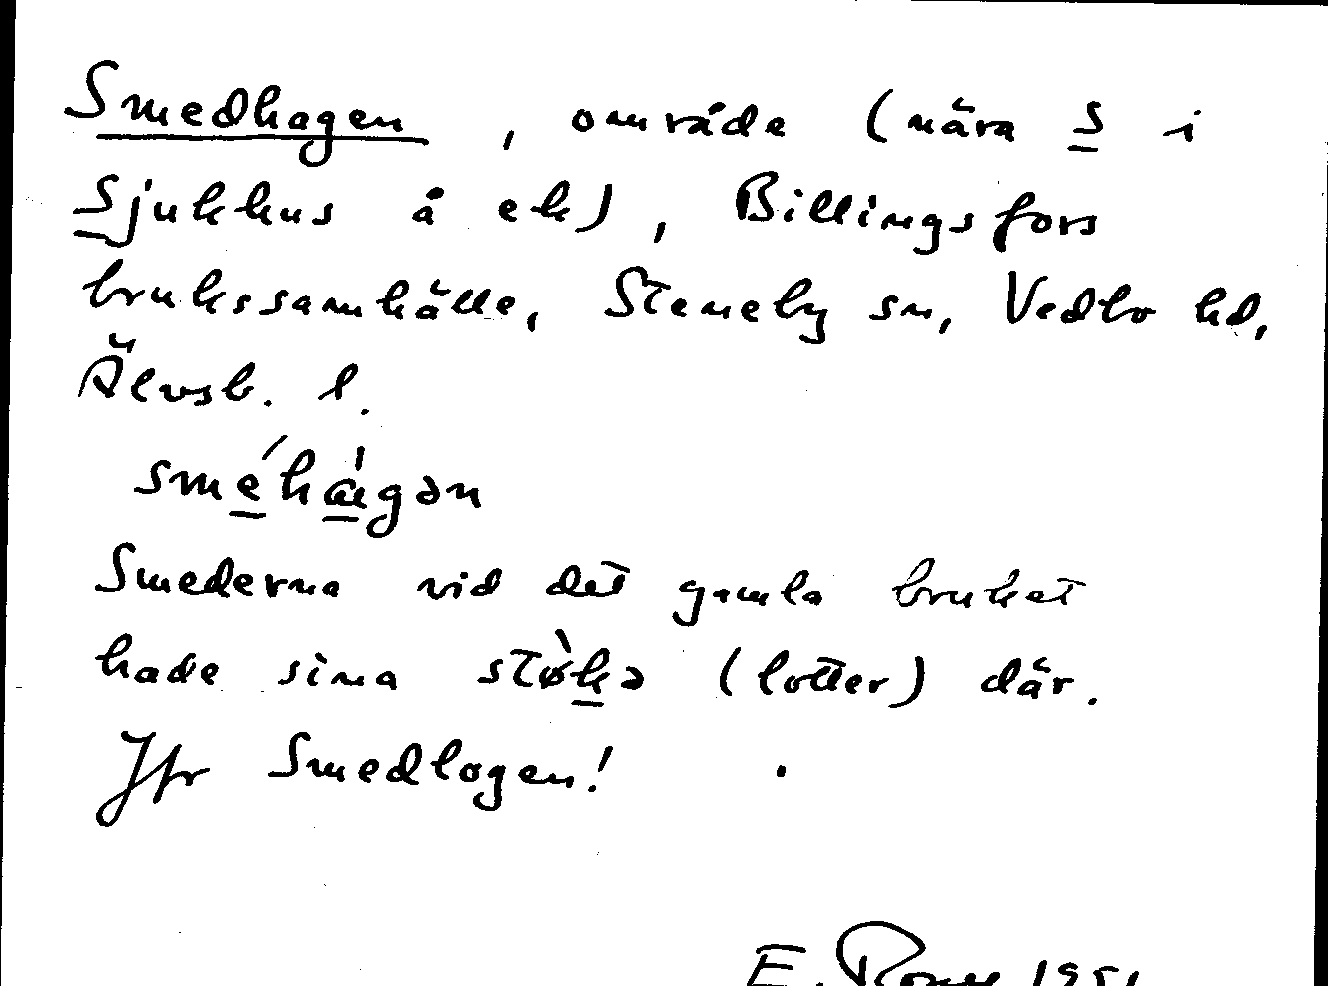 Smedhagen, område (nära S i
Sjukhus å ek), Billingsfors
brukssamhälle, Steneby sn, Vedbo hd,
Älvsb. l.
sméhágən
Smederna vid det gamla bruket
hade sina stø̀kə (lotter) där.
Jfr Smedlogen!
E. 1951